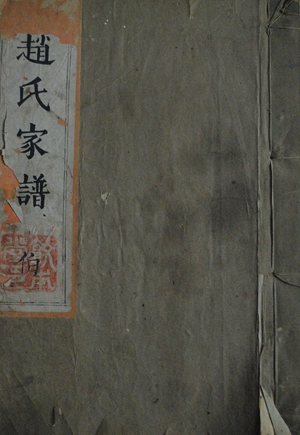 趙氏家譜
伯